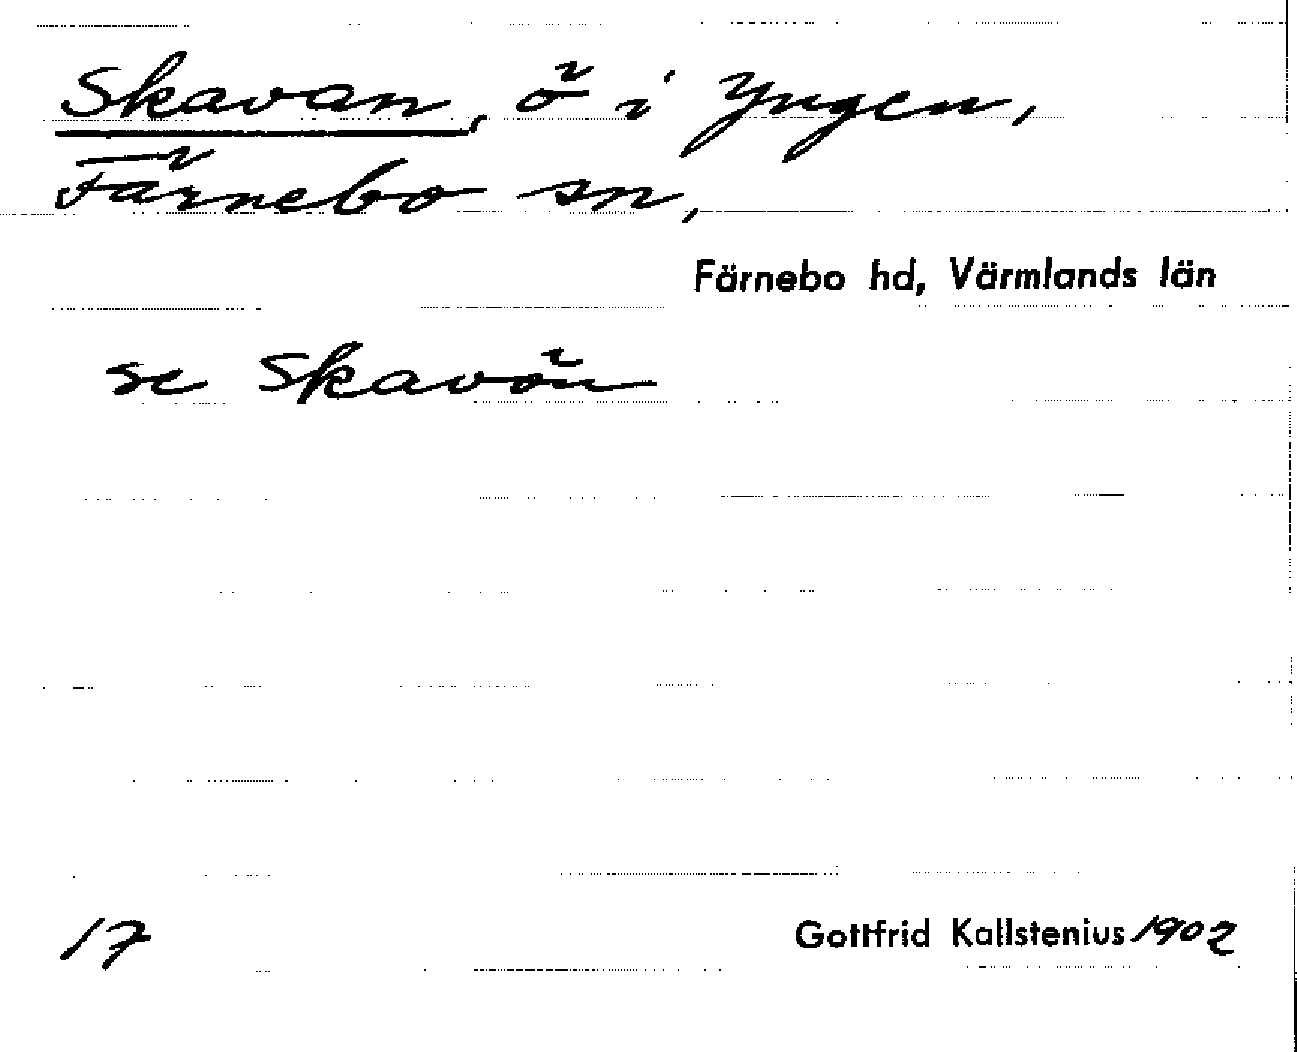 Skavan, ö i Yngen,
Färnebo sn,
Färnebo hd, Värmlands län
se Skavön
17
Gottfrid Kallstenius 1902